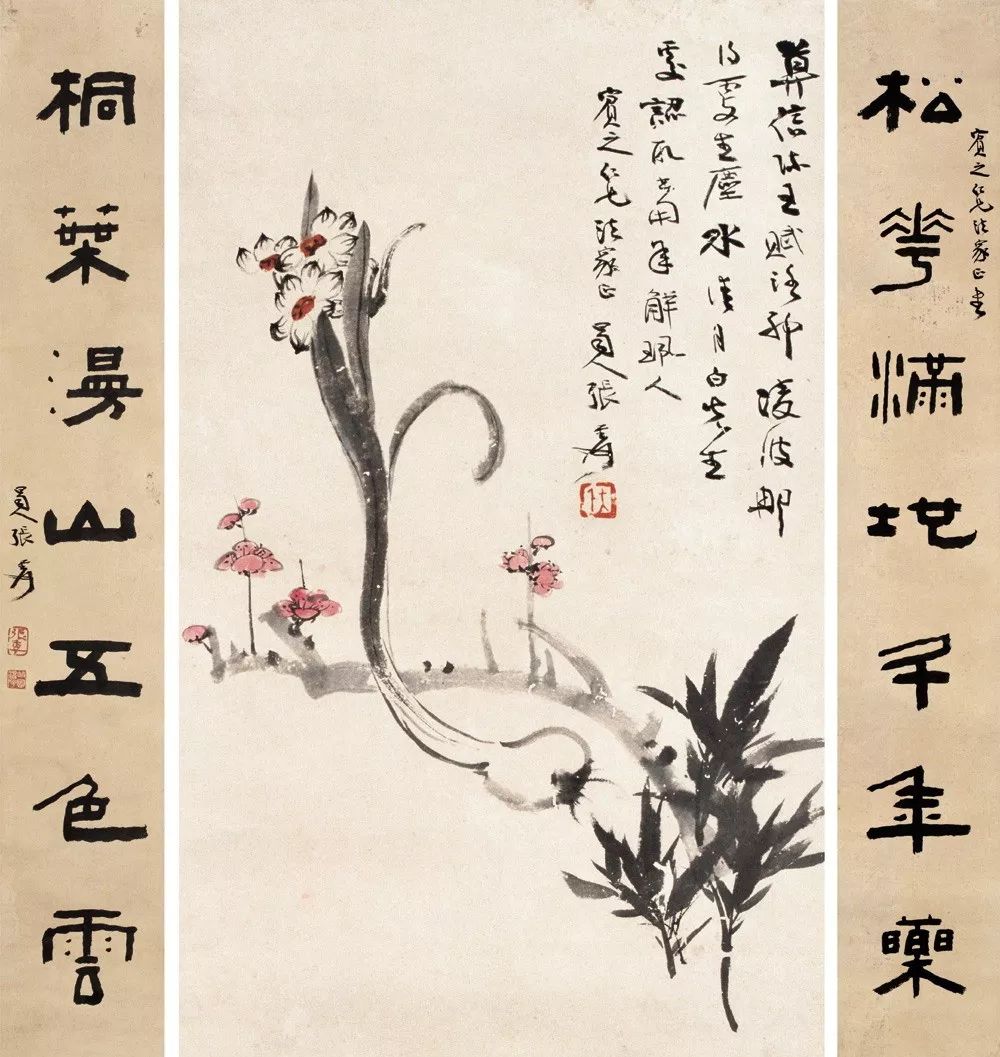 松華滿地千年藥
賓之仁兄法家正書
莫信陳王賦洛神凌波那
得更生塵水清月白生
處認取當年解珮人
賓之仁兄法家正 蜀人張爰
桐葉漫山五色雲
蜀人張爰